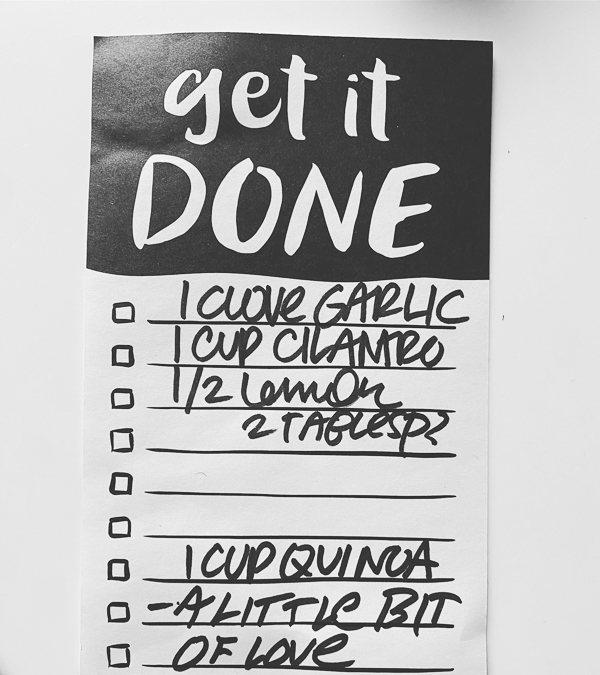 get it
DONE
1 CLOVE GARLIC
1 CUP CILANTRO
1/2 Lemon
2 TABLESP?
1 CUP QUINOA
- A LITTLE BIT
OF LOVE